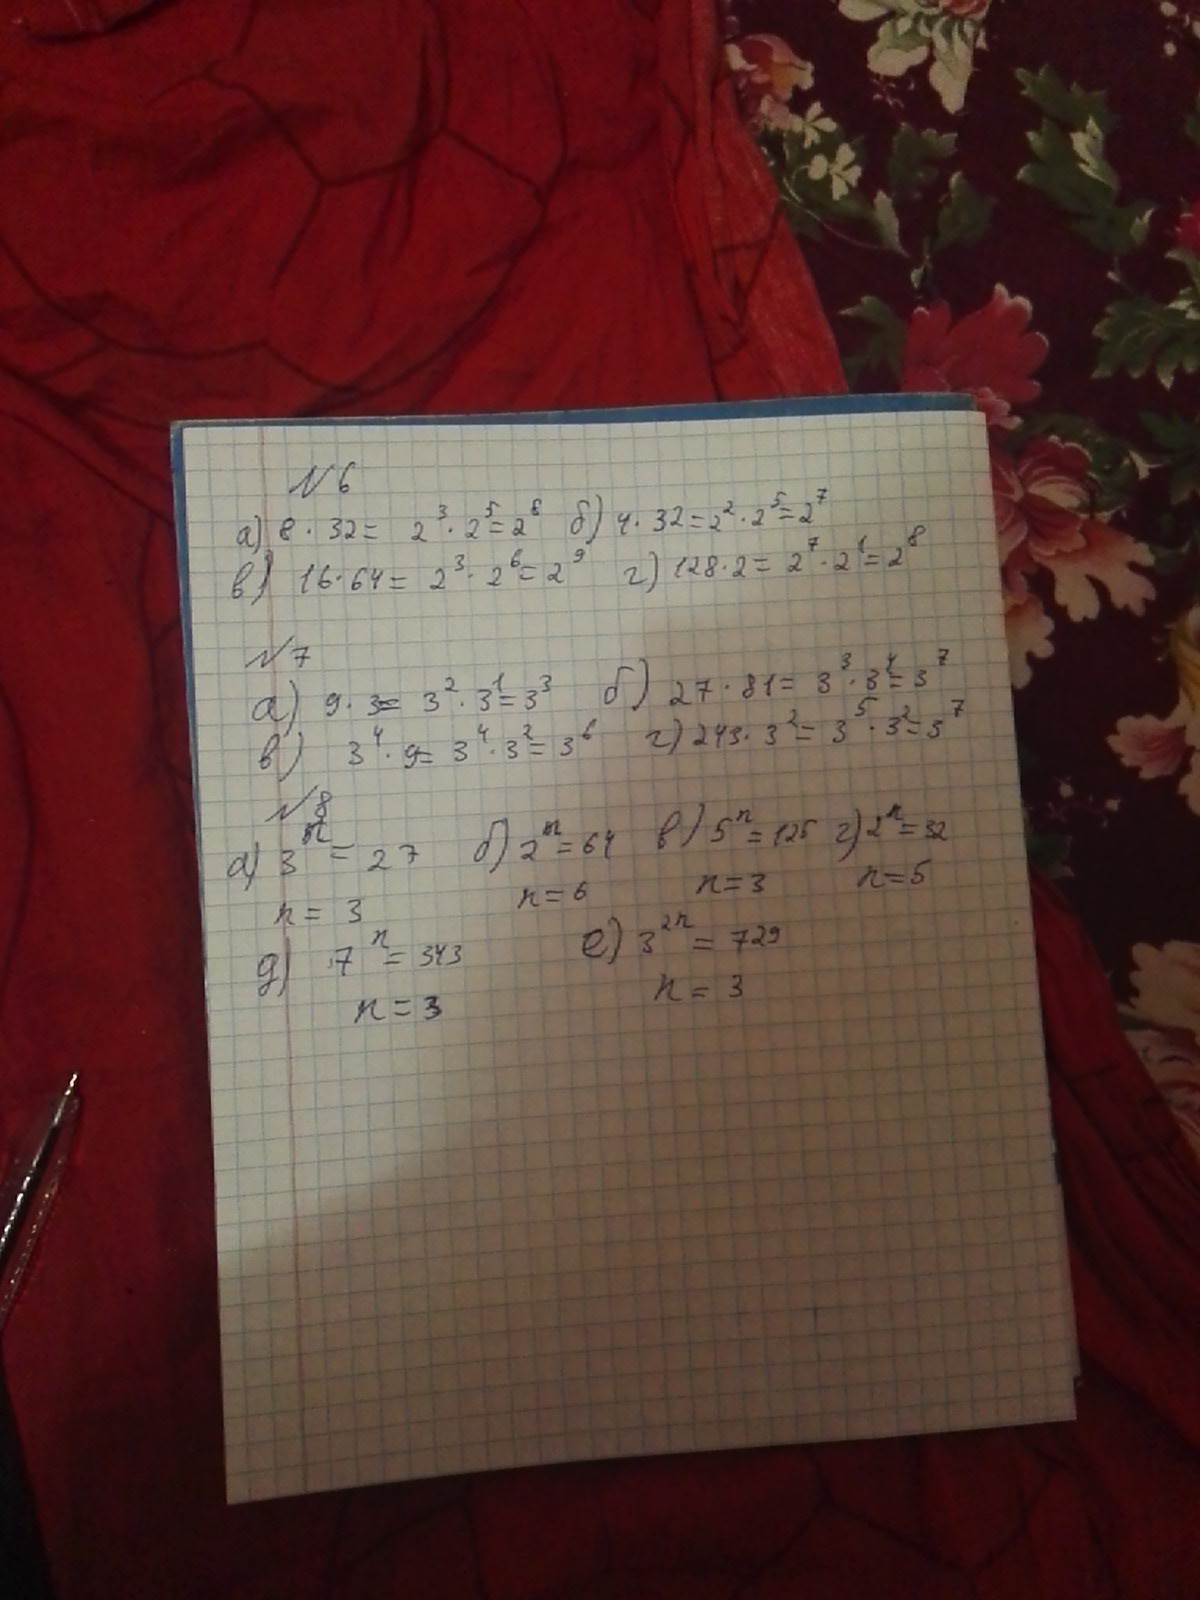 №6
а) 8 · 32 = 2³ · 2⁵ = 2⁸ б) 4 · 32 = 2² · 2⁵ = 2⁷
в) 16 · 64 = 2³ · 2⁶ = 2⁹ г) 128 · 2 = 2⁷ · 2¹ = 2⁸
№7
а) 9 · 3 = 3² · 3¹ = 3³ б) 27 · 81 = 3³ · 3⁴ = 3⁷
в) 3⁴ · 9 = 3⁴ · 3² = 3⁶ г) 243 · 3² = 3⁵ · 3² = 3⁷
№8
а) 3ⁿ = 27 б) 2ⁿ = 64 в) 5ⁿ = 125 г) 2ⁿ = 32
n = 3 n = 6 n = 3 n = 5
д) 7ⁿ = 343 е) 3²ⁿ = 729
n = 3 n = 3